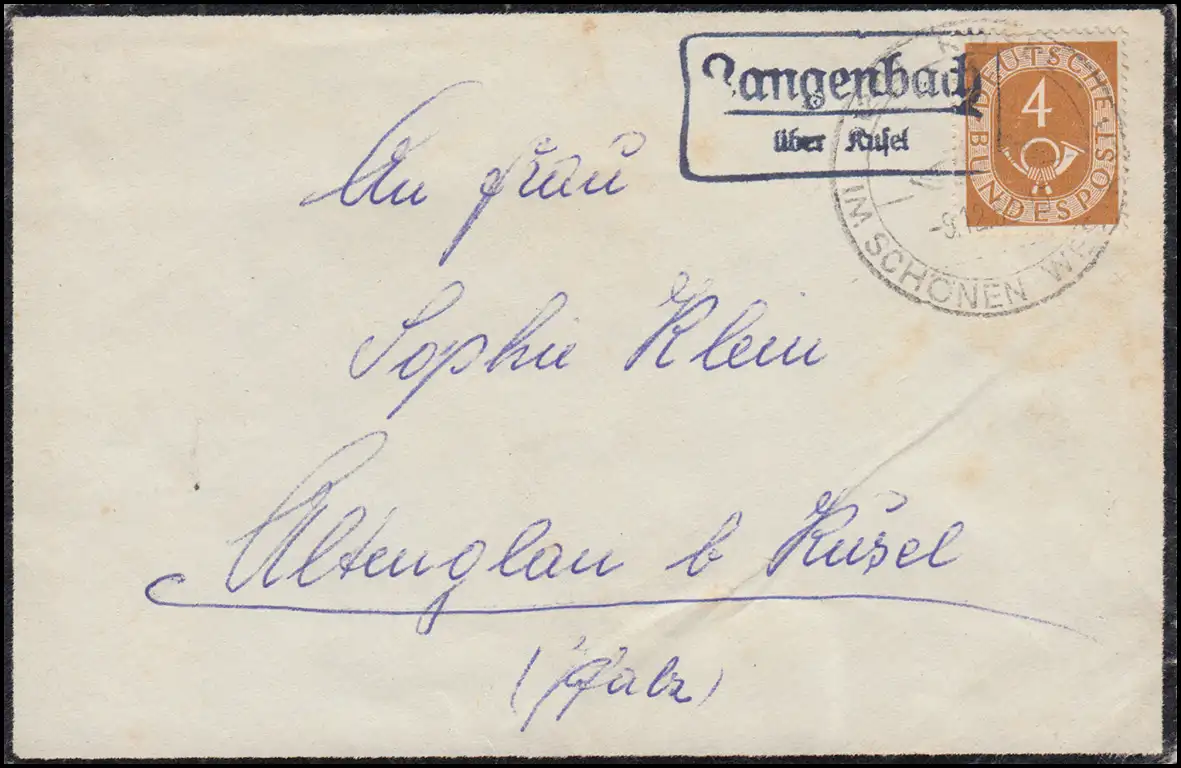 Langenbach
über Kusel
DEUTSCHE
BUNDESPOST
4
-9.12.
IM SCHÖNEN WE
An Frau
Sophie Klein
Altenglan b Kusel
(Pfalz)